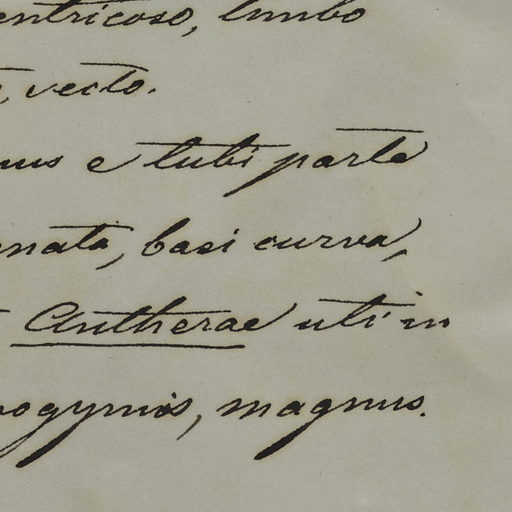 entricoso, limbo
, recto.
nus e tubi parte
nata, basi curva,
Antherae uti in
ogynis, magnus.